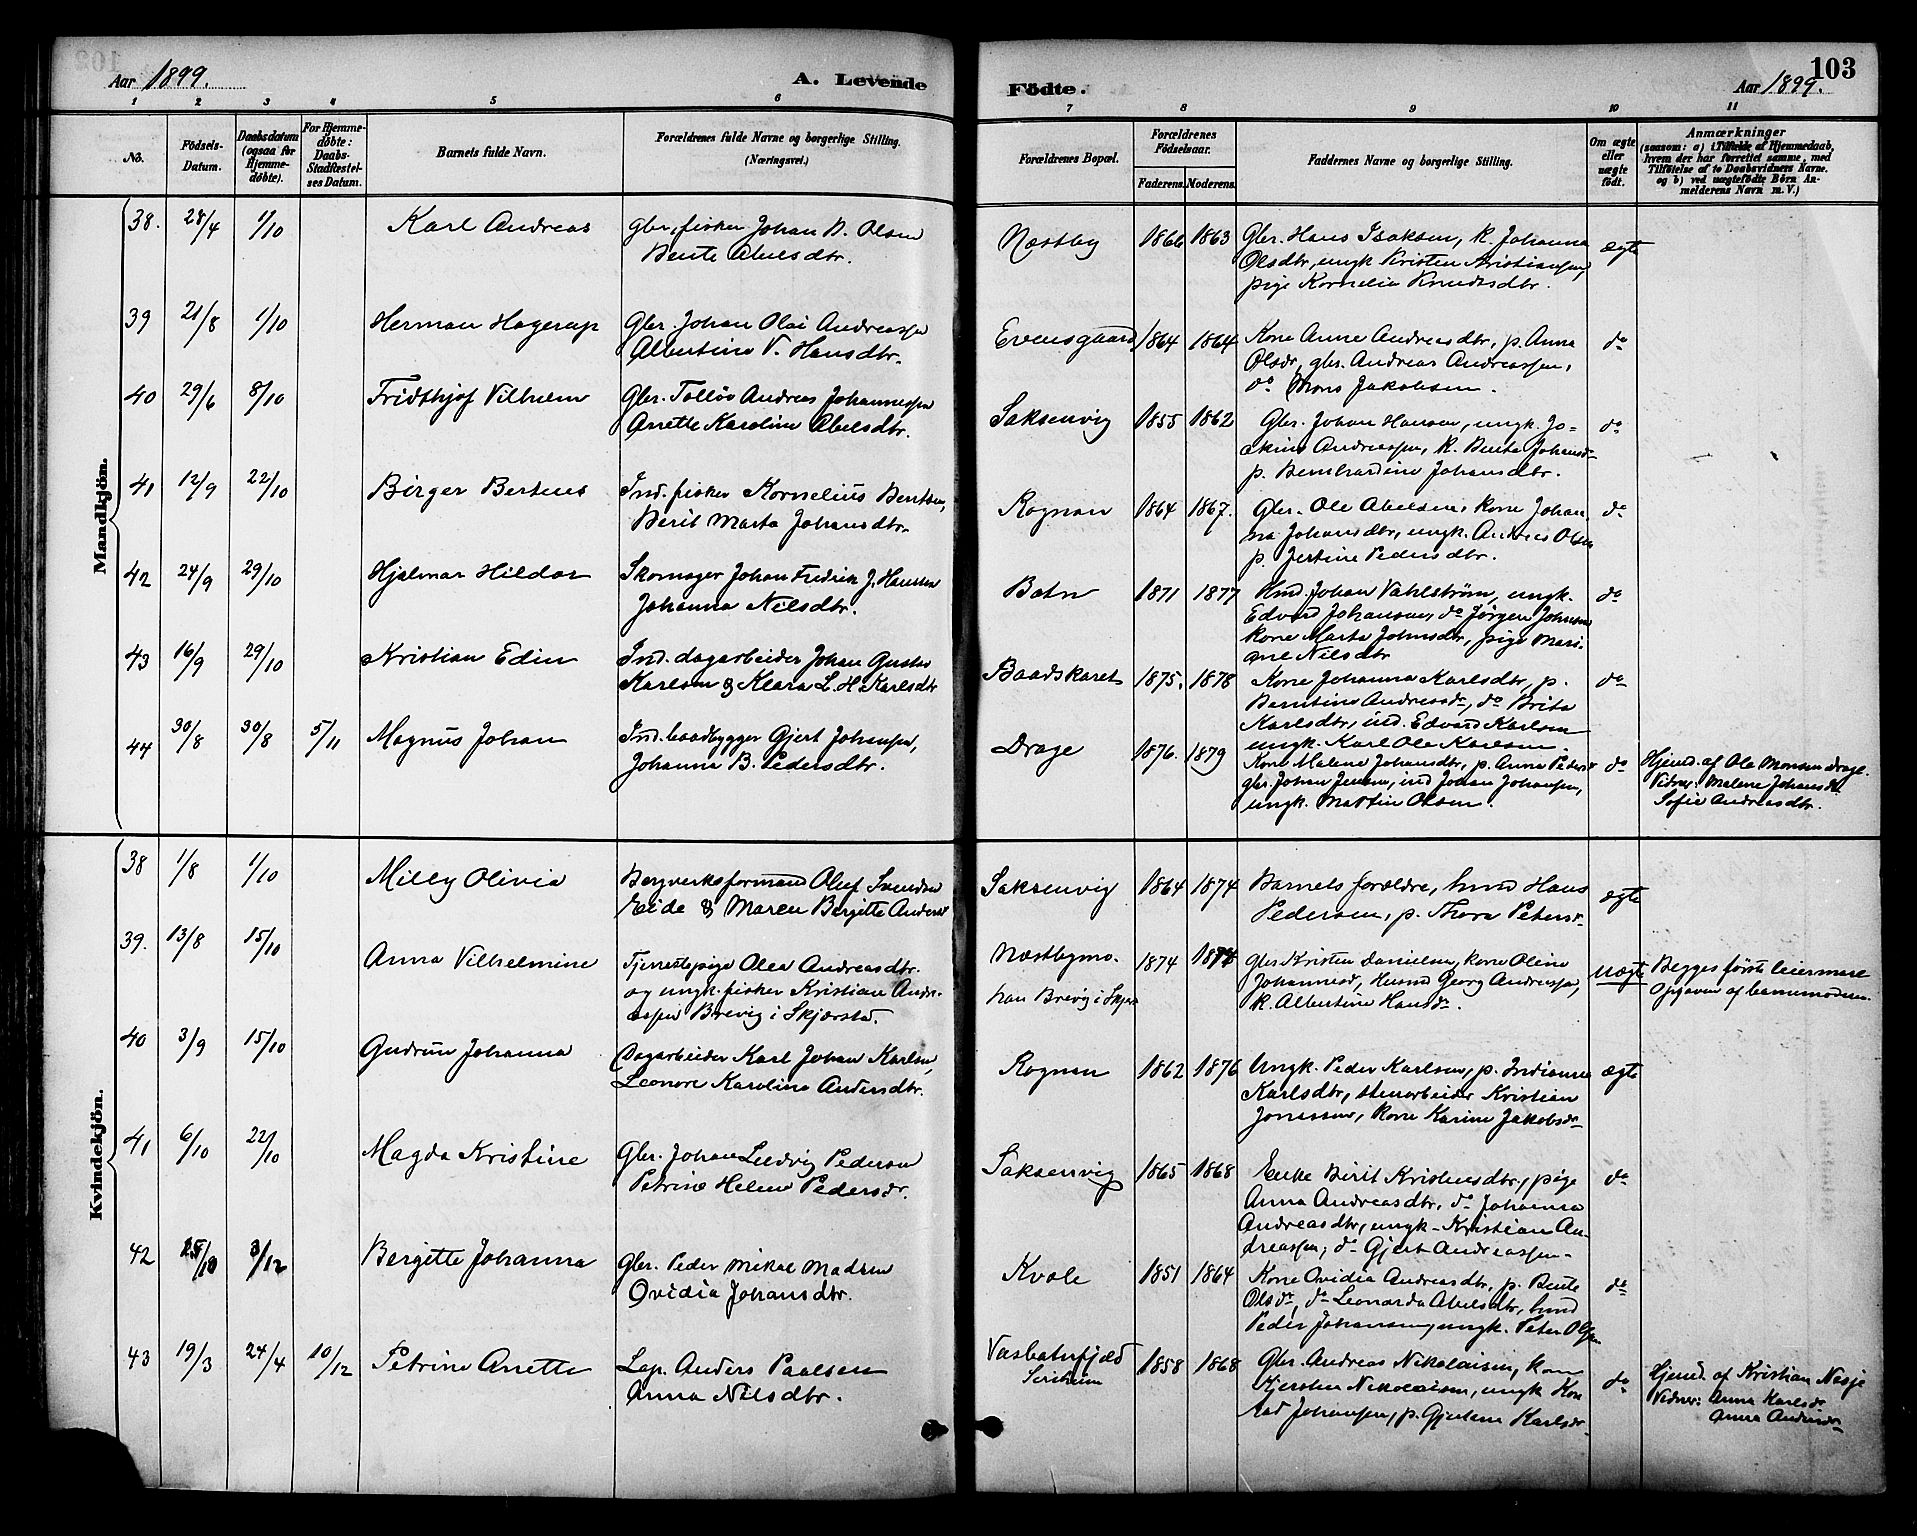 Aar 1899.
A. Levende
1 2 3 4 5 6
No.
Födsels-
Datum.
Daabsdatum
(ogsaa for
Hjemme-
døbte).
For Hjemme-
døbte:
Daabs-
Stadfæstel-
ses Datum.
Barnets fulde Navn.
Forældrenes fulde Navne og borgerlige Stilling.
(Næringsvei.)
Mandkjön.
38. 28/4 1/10 Karl Andreas Gbr., fisker Johan A. Olsen
Bente Abelsdtr.
39 21/8 1/10 Herman Hagerup Gbr. Johan Olai Andreassen
Albertine V. Hansdtr.
40 29/6 8/10 Fridthjof Vilhelm Gbr. Tolløv Andreas Johannessen
Anette Karoline Abelsdtr.
41 12/9 22/10 Birger Berteus Ind. fisker Kornelius Bentsen,
Berit Marta Johansdtr.
42 24/9 29/10 Hjalmar Hildor Skomager Johan Fredrik J. Hansen
Johanna Nilsdtr.
43 16/9 29/10 Kristian Edin Ind. dagarbeider Johan Gustav
Karlsen & Klara L. H. Karlsdtr
44 30/8 30/8 5/11 Magnus Johan Ind. baadbygger Gjert Johansen,
Johanna B. Pedersdtr.
Kvindekjön.
38 1/8 1/10 Milly Olivia Bergverksformand Oluf Svendsen
Eide & Maren Bergitte Andersdr
39. 13/8 15/10 Anna Vilhelmine Tjenestepige Olea Andreasdtr.
og ungk. fisker Kristian Andre-
assen Brevig i Skjerstad.
40 3/9 15/10 Gudrun Johanna Dagarbeider Karl Johan Karlsen,
Leonore Karoline Andersdtr.
41 6/10 22/10 Magda Kristine Gbr. Johan Ludvig Pedersen
Petrine Helene Pedersdr.
42 3/12 Bergitte Johanna Gbr. Peder Mikal Madsen
Ovidia Johansdtr.
43 19/3 24/4 10/12 Petrine Anette Lap. Anders Paalsen
Anna Nilsdtr.
Födte.
103
Aar 1899.
7 8 9 10 11
Forældrenes Bopæl.
Forældrenes
Födselsaar.
Faderens. Moderens.
Faddernes Navne og borgerlige Stilling.
Om ægte
eller
uægte
födt.
Anmærkninger
(saasom: a) i Tilfælde af Hjemmedaab,
hvem der har forrettet samme, med
Tilföielse af to Daabsvidners Navne.
og b) ved uægtefödte Börn An-
melderens Navn m. V.)
Næstby 1866 1863 Gbr. Hans Isaksen, k. Johanna
Olsdtr, ungk Kristen Kristiansen,
pige Kornelia Knudsdtr.
ægte
Evensgaard 1864 1864 Kone Anne Andreasdtr, p. Anna
Olsdr, gbr. Andreas Andreassen,
do Mons Jakobsen.
do
Saksenvig 1855 1862 Gbr. Johan Hansen, ungk. Jo-
akim Andreassen, k. Berita Johansdr
p. Bernhardine Johansdtr.
do
Rognan 1864 1867. Gbr. Ole Abelsen, kone Johan
na Johansdtr, ungk. Andreas Olsen
p. Jertine Pedersdtr.
do
Botn 1871 1877 Hmd. Johan Vahlstrøm, ungk.
Edvard Johansen, do Jørgen Johnsen
kone Marta Johnsdtr, pige Mari-
ane Nilsdtr
do
Baadskaret 1875. 1878 Kone Johanna Karlsdtr, p.
Berntine Andreasdr, do Brita
Karlsdtr, ind. Edvard Karlsen
ungk. Karl Ole Karlsen.
do
Drage 1876. 1879 Kone Malene Johansdtr, p. Anna Pedersdr
gbr. Johan Jensen, ind Johan Johansen,
ungk. Martin Olsen.
do Hjemd. af Ole Monsen Drage.
Vidner: Malene Johansdr
Sofie Andreasdtr.
Saksenvig 1864 1874 Barnets forældre, hmd Hans
Pedersen, p. Thora Petersdr
ægte
Næstbymo. 1874 1874 Gbr Kristen Danielsen, kone Oline
han Brevig i Skjerst Johannesd, Husmd Georg Andreassen,
k. Albertine Hansdr.
uægte Begges første leiermaal
Opgaven af barnemoderen.
Rognan 1862 1876 Ungk. Peder Karlsen, p. Indianna
Karlsdtr, stenarbeider Kristian
Jonassen, kone Karine Jakobsdr
ægte
Saksenvig 1865 1868 Enke Birit Kristensdtr, pige
Anna Andreasdtr, do Johanna
Andreasdtr, ungk. Kristian An-
dreassen, do Gjert Andreassen.
do
Kvale 1851 1864 Kone Ovidia Andreasdtr, p. Bente
Olsdr, do Leonarda Abelsdtr, hmd
Peder Johansen, ungk. Peter Olsen
do
Vasbotnfjeld 1858 1868 Gbr. Andreas Nikolaisen, kone
Kjersten Nikolaisen, ungk Kon
rad Johansen, p. Gjertine Karlsdr.
do Hjemd. af Kristian Nesje
Vidner: Anna Karlsdr
Anna Andersdr